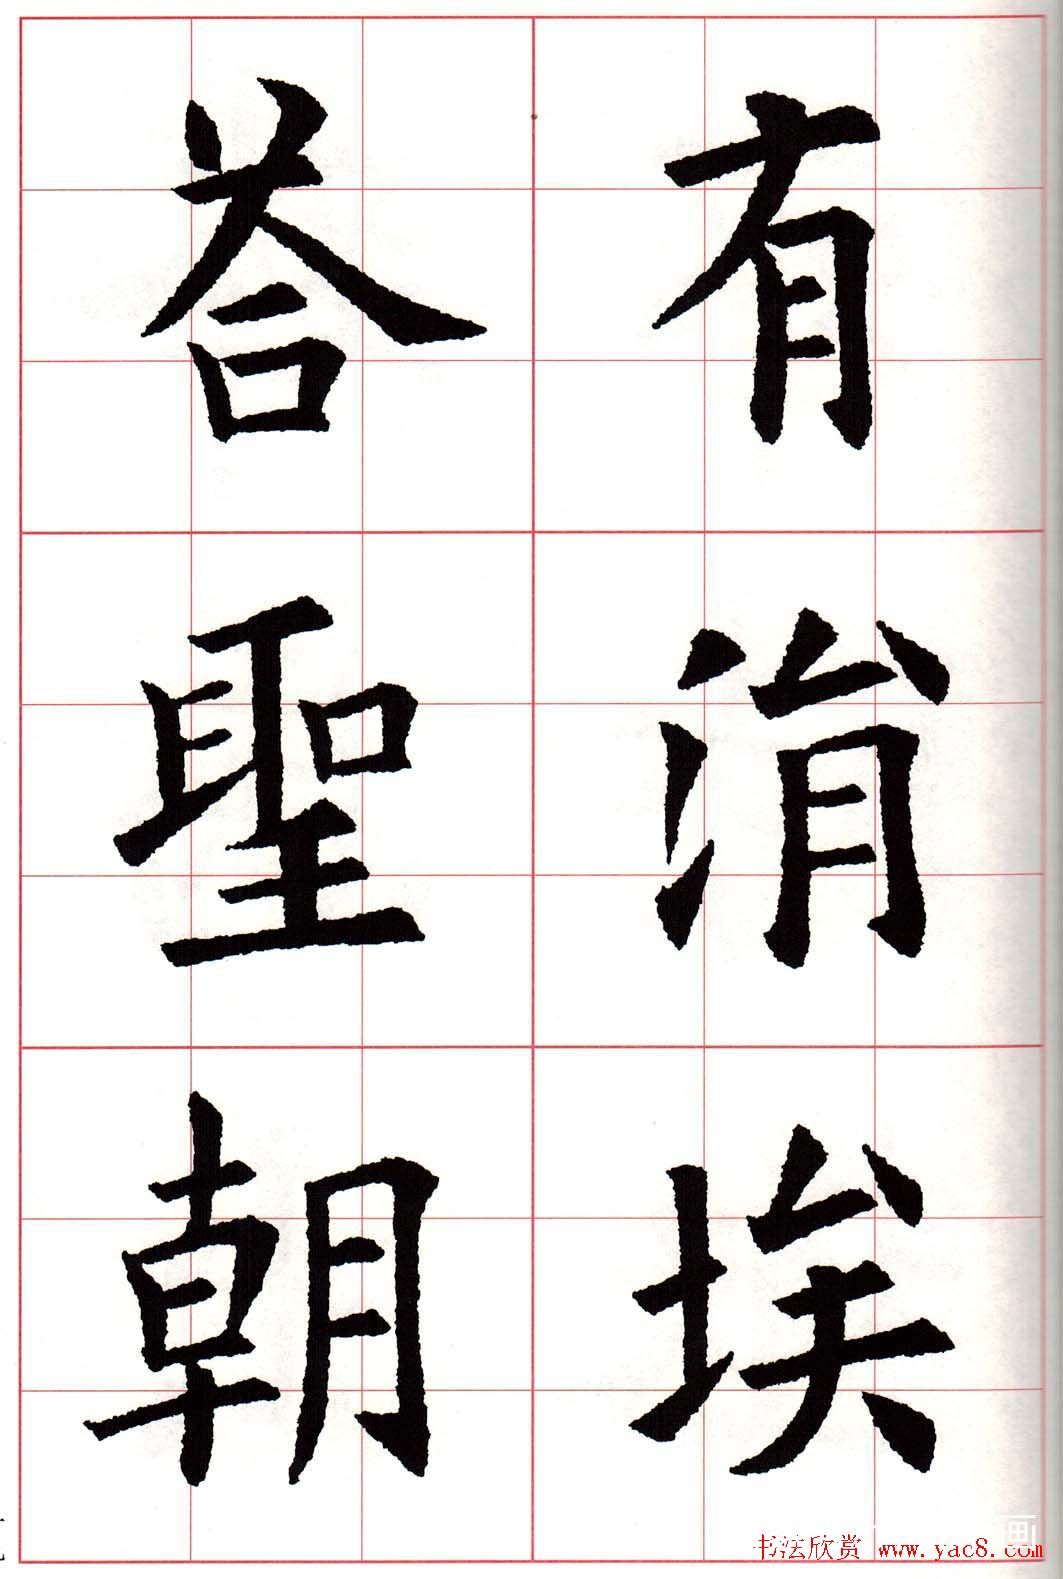 有涓埃
答聖朝
书法欣赏 www.yac8.com
画